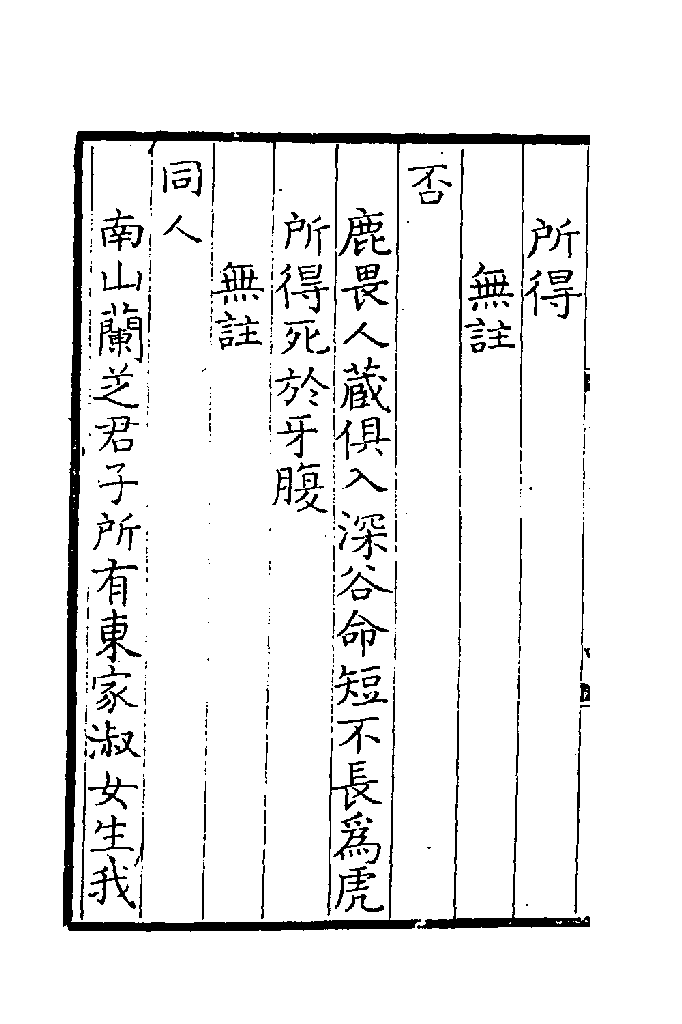 所得
無註
否
鹿畏人蔵俱入深谷命短不長爲虎
所得死於牙腹
無註
同人
南山蘭芝君子所有東家淑女生我